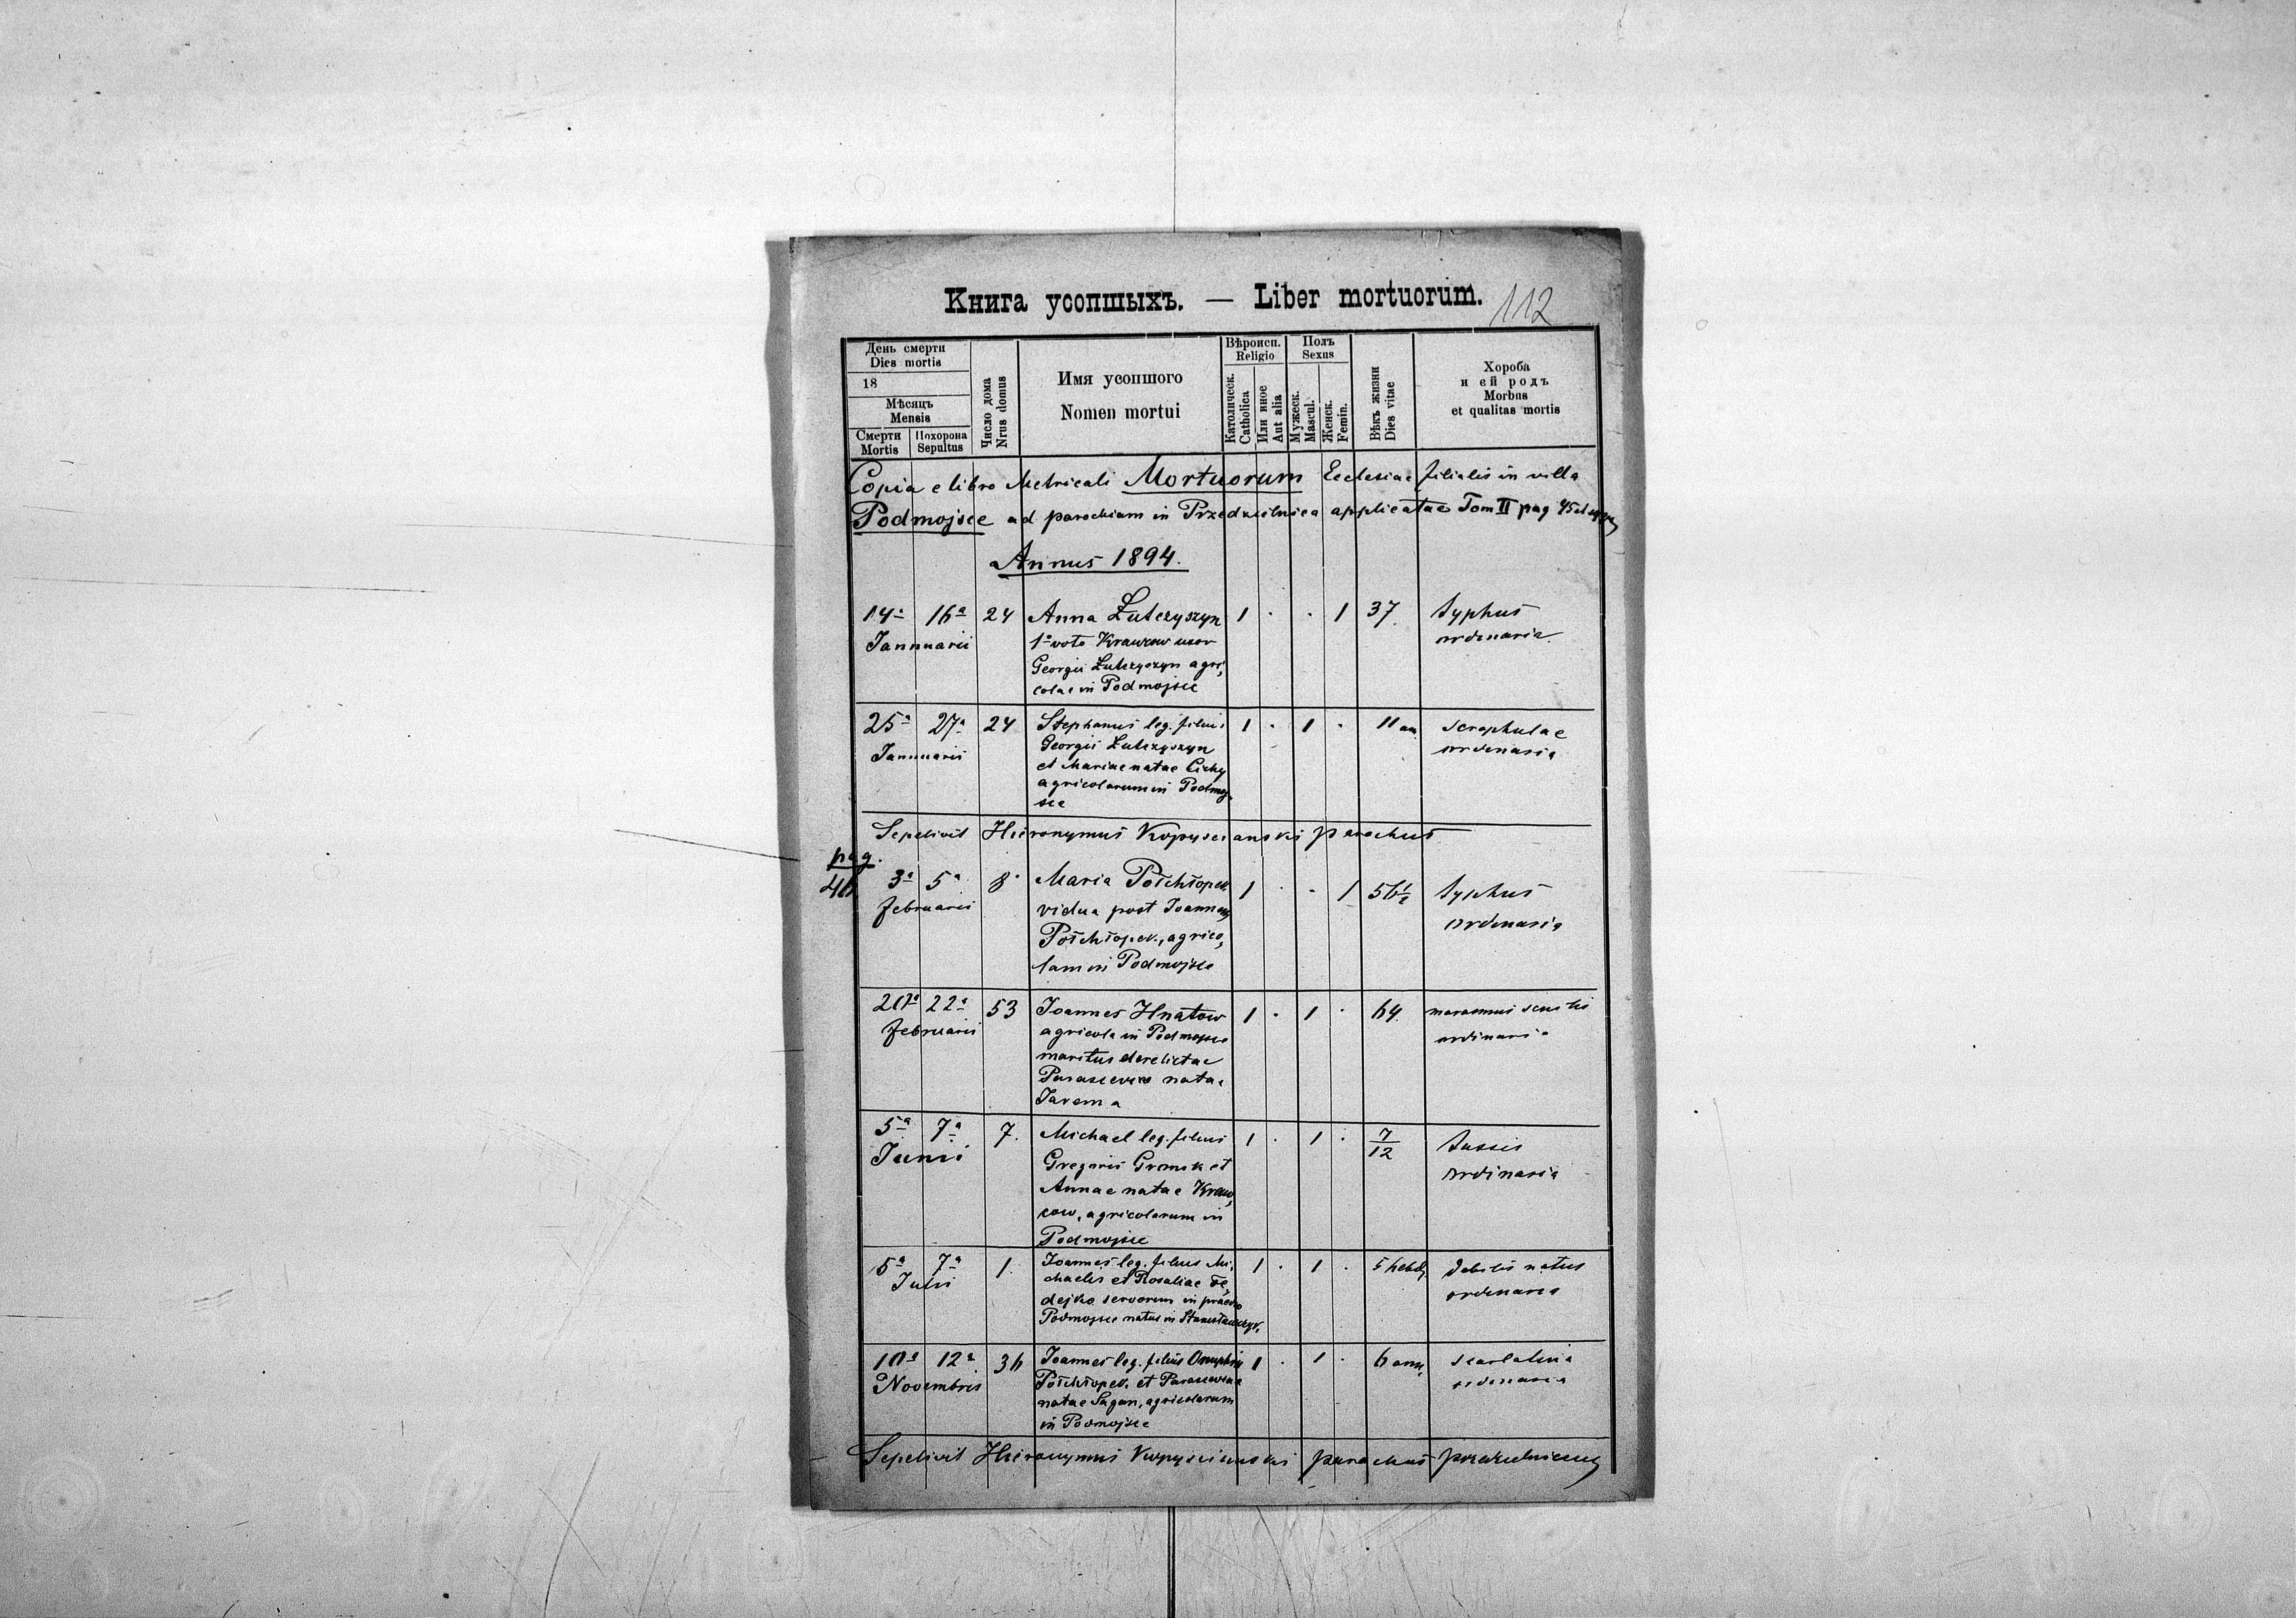 Книга усопшыхъ. — Liber mortuorum.
112
День смерти
Dies mortis
18
Мѣсяцъ
Mensis
Смерти
Mortis
Похорона
Sepultus
Число дома
Nrus domus
Имя усопшого
Nomen mortui
Вѣроисп.
Religio
Католическ.
Catholica
Или иное
Aut alia
Полъ
Sexus
Мужеск.
Mascul.
Женск.
Femin.
Вѣкъ жизни
Dies vitae
Хороба
и ей родъ
Morbus
et qualitas mortis
Copia e libro Metricali Mortuorum Ecclesiae filialis in villa
Podmojsce ad parochiam in Przedzielnica applicatae Tom II pag 45
Annus 1894.
14a 16a 24 Anna Łutczyszyn 1 . . 1 37. typhus
Jannuarii 1o voto Krawcow uxor ordinaria
Georgii Łutczyszyn agri,
colae in Podmojsce
25a 27a 24 Stephanus leg. filius 1 . 1 . 11 an scrophulae
Jannuarii Georgii Łutczyszyn ordinaria
et Mariae natae Cichy
agricolarum in Podmoj
sce
Sepelivit Hieronymus Kopyscianski parochus
pag.
46
3a 5a 8 Maria Połchłopek 1 . . 1 56 1/2 typhus
februarii vidua post Joannem ordinaria
Połchłopek, agrico,
lam in Podmojsce
20a 22a 53 Joannes Hnatow 1 . 1 . 64. marasmus senilis
februarii agricola in Podmojsce ordinaria
maritus derelictae
Parascevae natae
Jarema
5a 7a 7. Michael leg. filius 1 . 1 . 7/12 tussis
Junii Gregorii Gronik et ordinaria
Annae natae Kraw,
cow, agricolarum in
Podmojsce
5a 7a 1. Joannes leg. filius Mi, 1 . 1 . 5 hebd, debilis natus
Julii chaelis et Rosaliae Fe, ordinaria
dejko servorum in praedio
Podmojsce natus in
10a 12a 36 Joannes leg. filius Onuphrii 1 . 1 . 6 ann, scarlatina
Novembris Połchłopek et Parascevae ordinaria
natae Sagan, agricolarum
in Podmojsce
Sepelivit Hieronymus Kopyscianski parochus